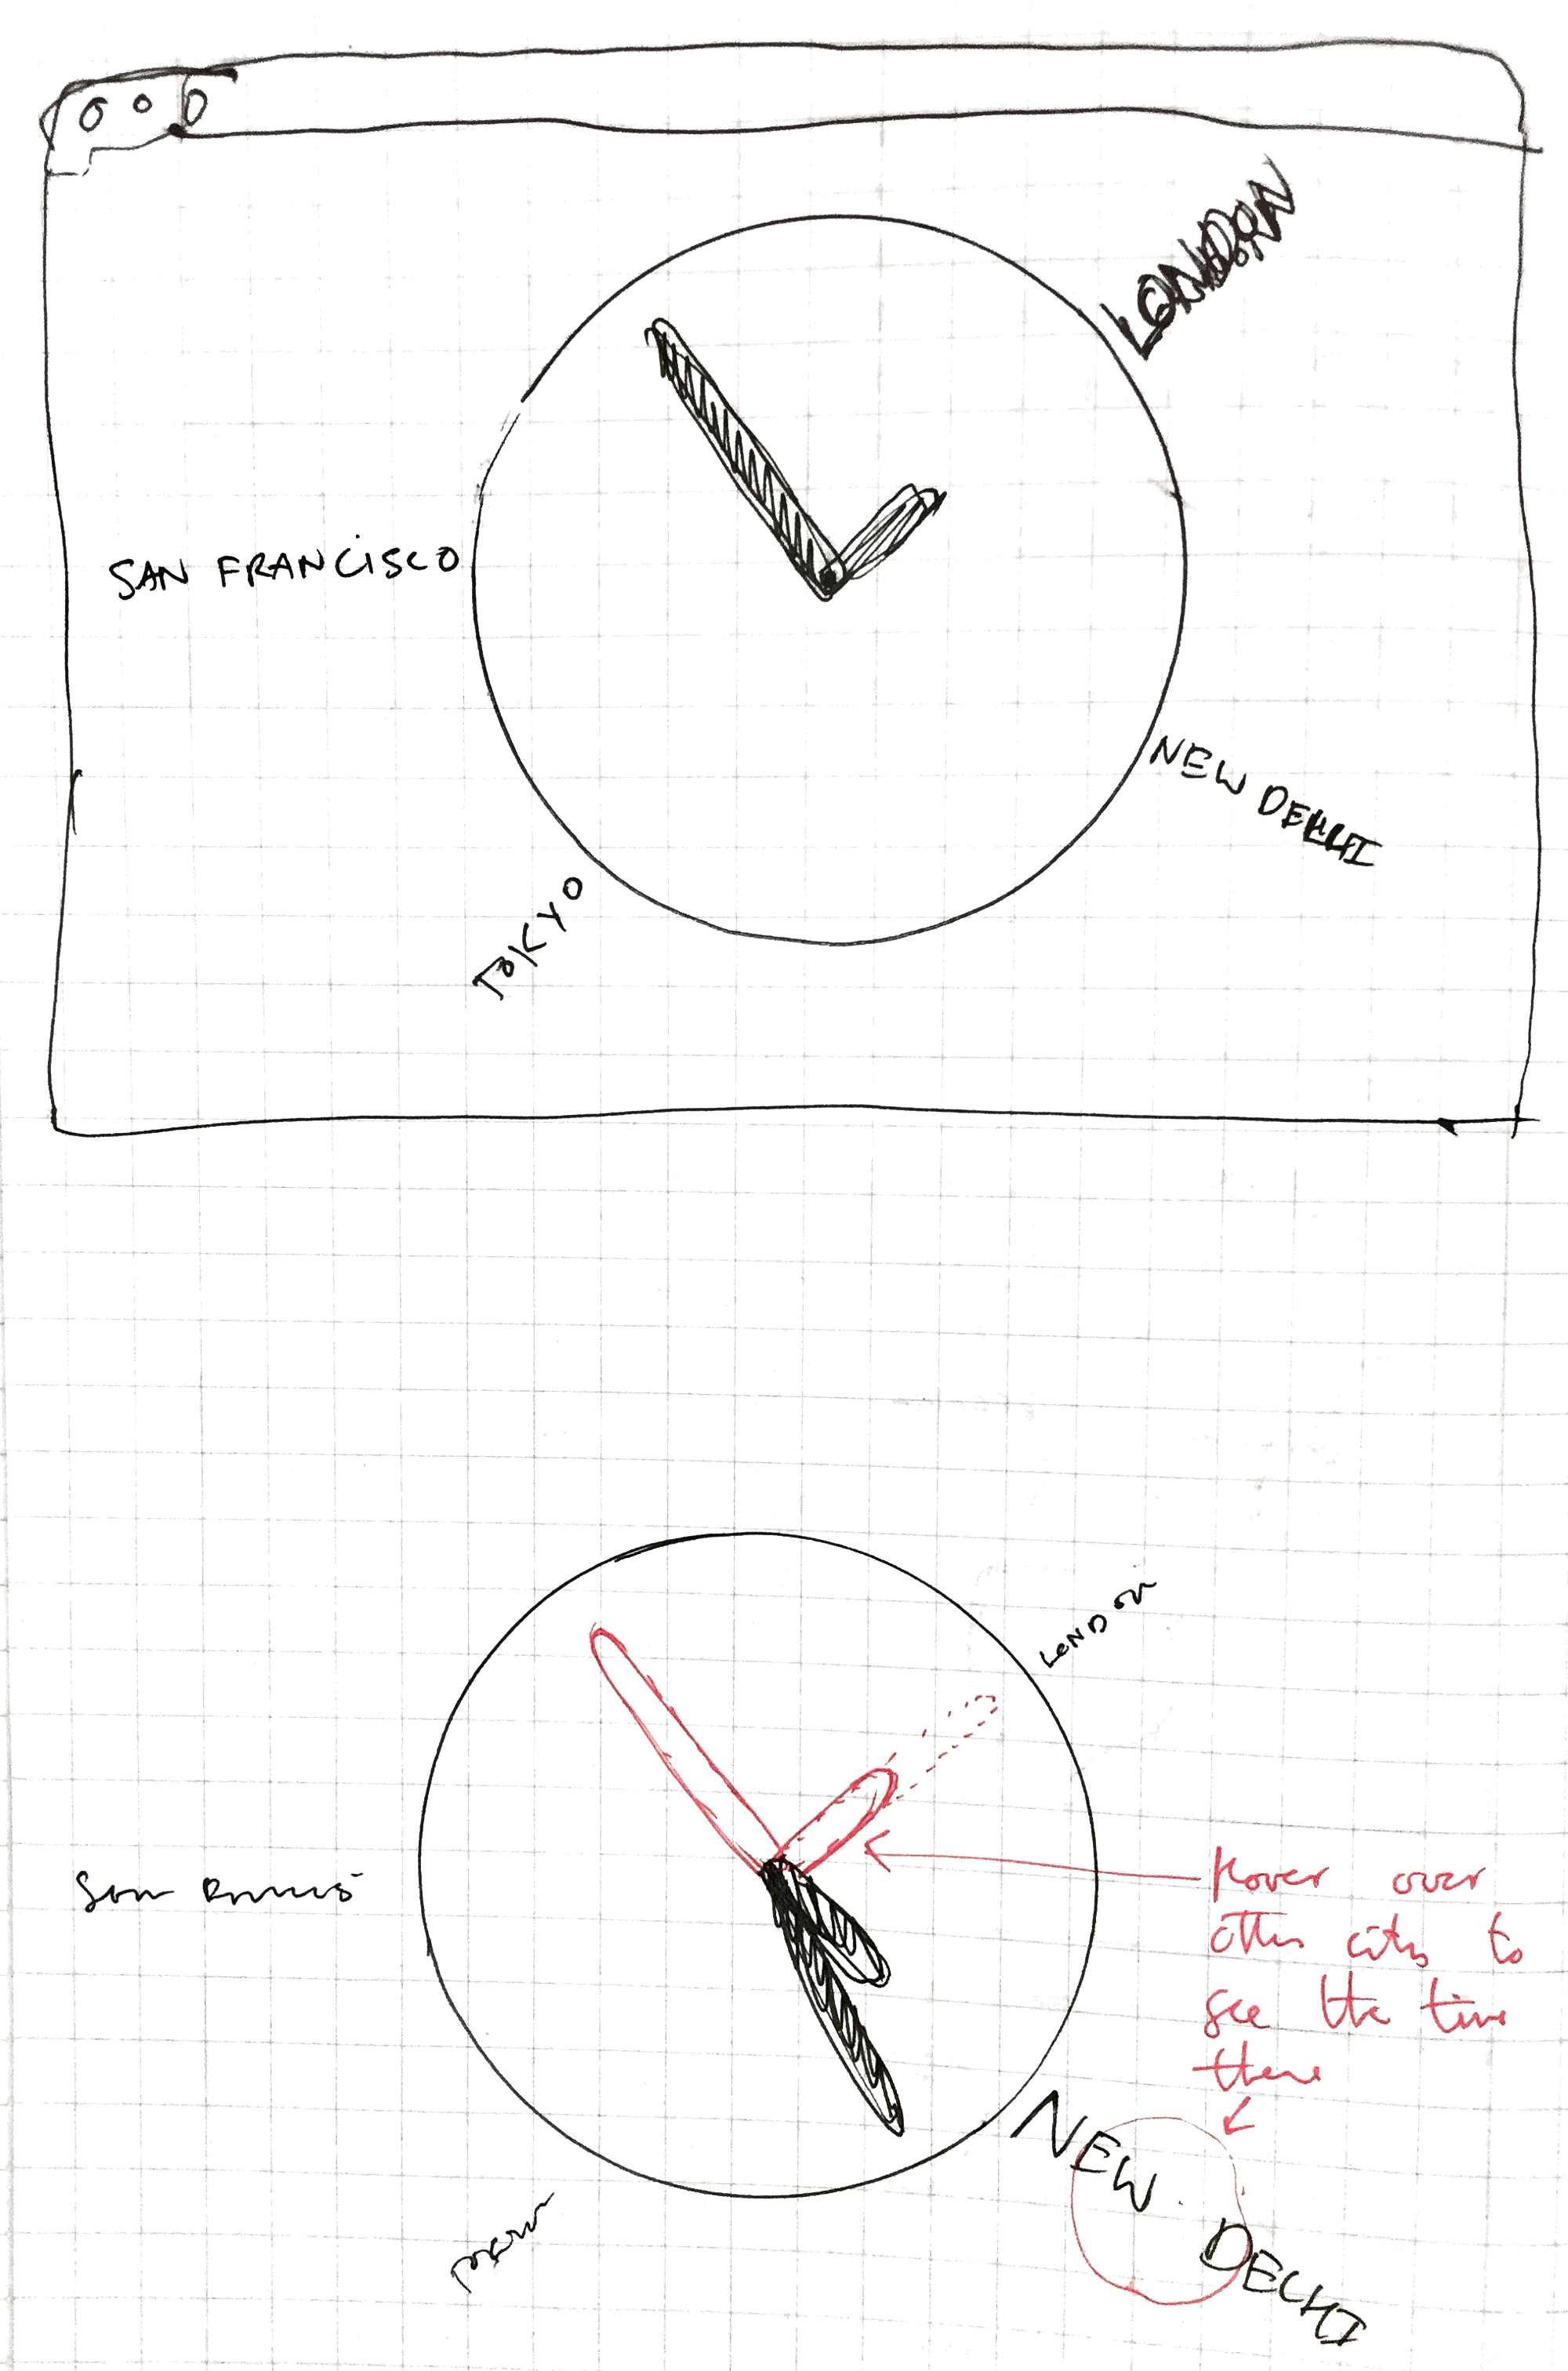 LONDON
SAN FRANCISCO
NEW DELHI
TOKYO
LONDON
Hover over
other cities to
see the time
there
NEW DELHI